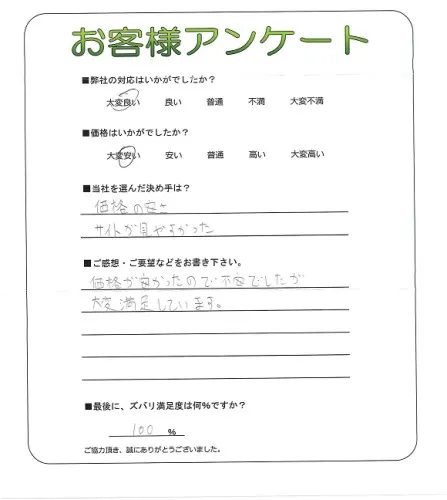 お客様アンケート
■弊社の対応はいかがでしたか?
大変良い 良い 普通 不満 大変不満
■価格はいかがでしたか?
大変安い 安い 普通 高い 大変高い
■当社を選んだ決め手は?
価格の安さ
サイトが見やすかった
■ご感想・ご要望などをお書き下さい。
価格が安かったので不安でしたが
大変満足しています。
■最後に、ズバリ満足度は何%ですか?
100 %
ご協力頂き、誠にありがとうございました。